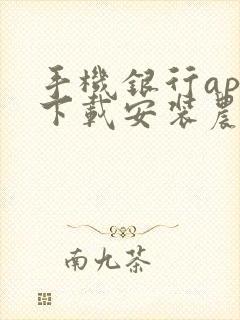 手機銀行ap
下載安裝農
南九茶